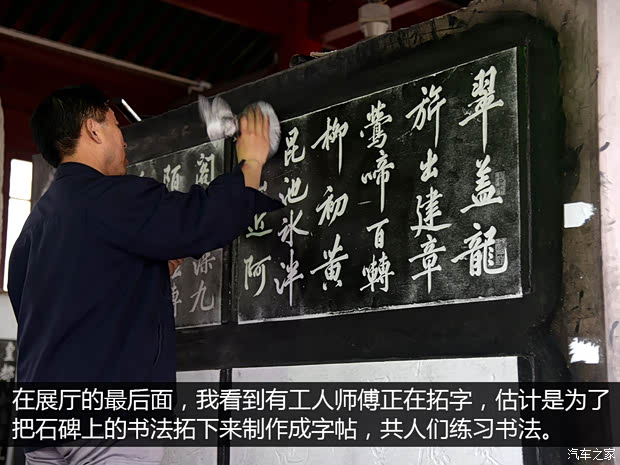 翠蓋龍
旂出建章
鶯啼百囀
柳初黃
昆池冰泮
近阿
深九
陌
在展厅的最后面，我看到有工人师傅正在拓字，估计是为了
把石碑上的书法拓下来制作成字帖，共人们练习书法。
汽车之家